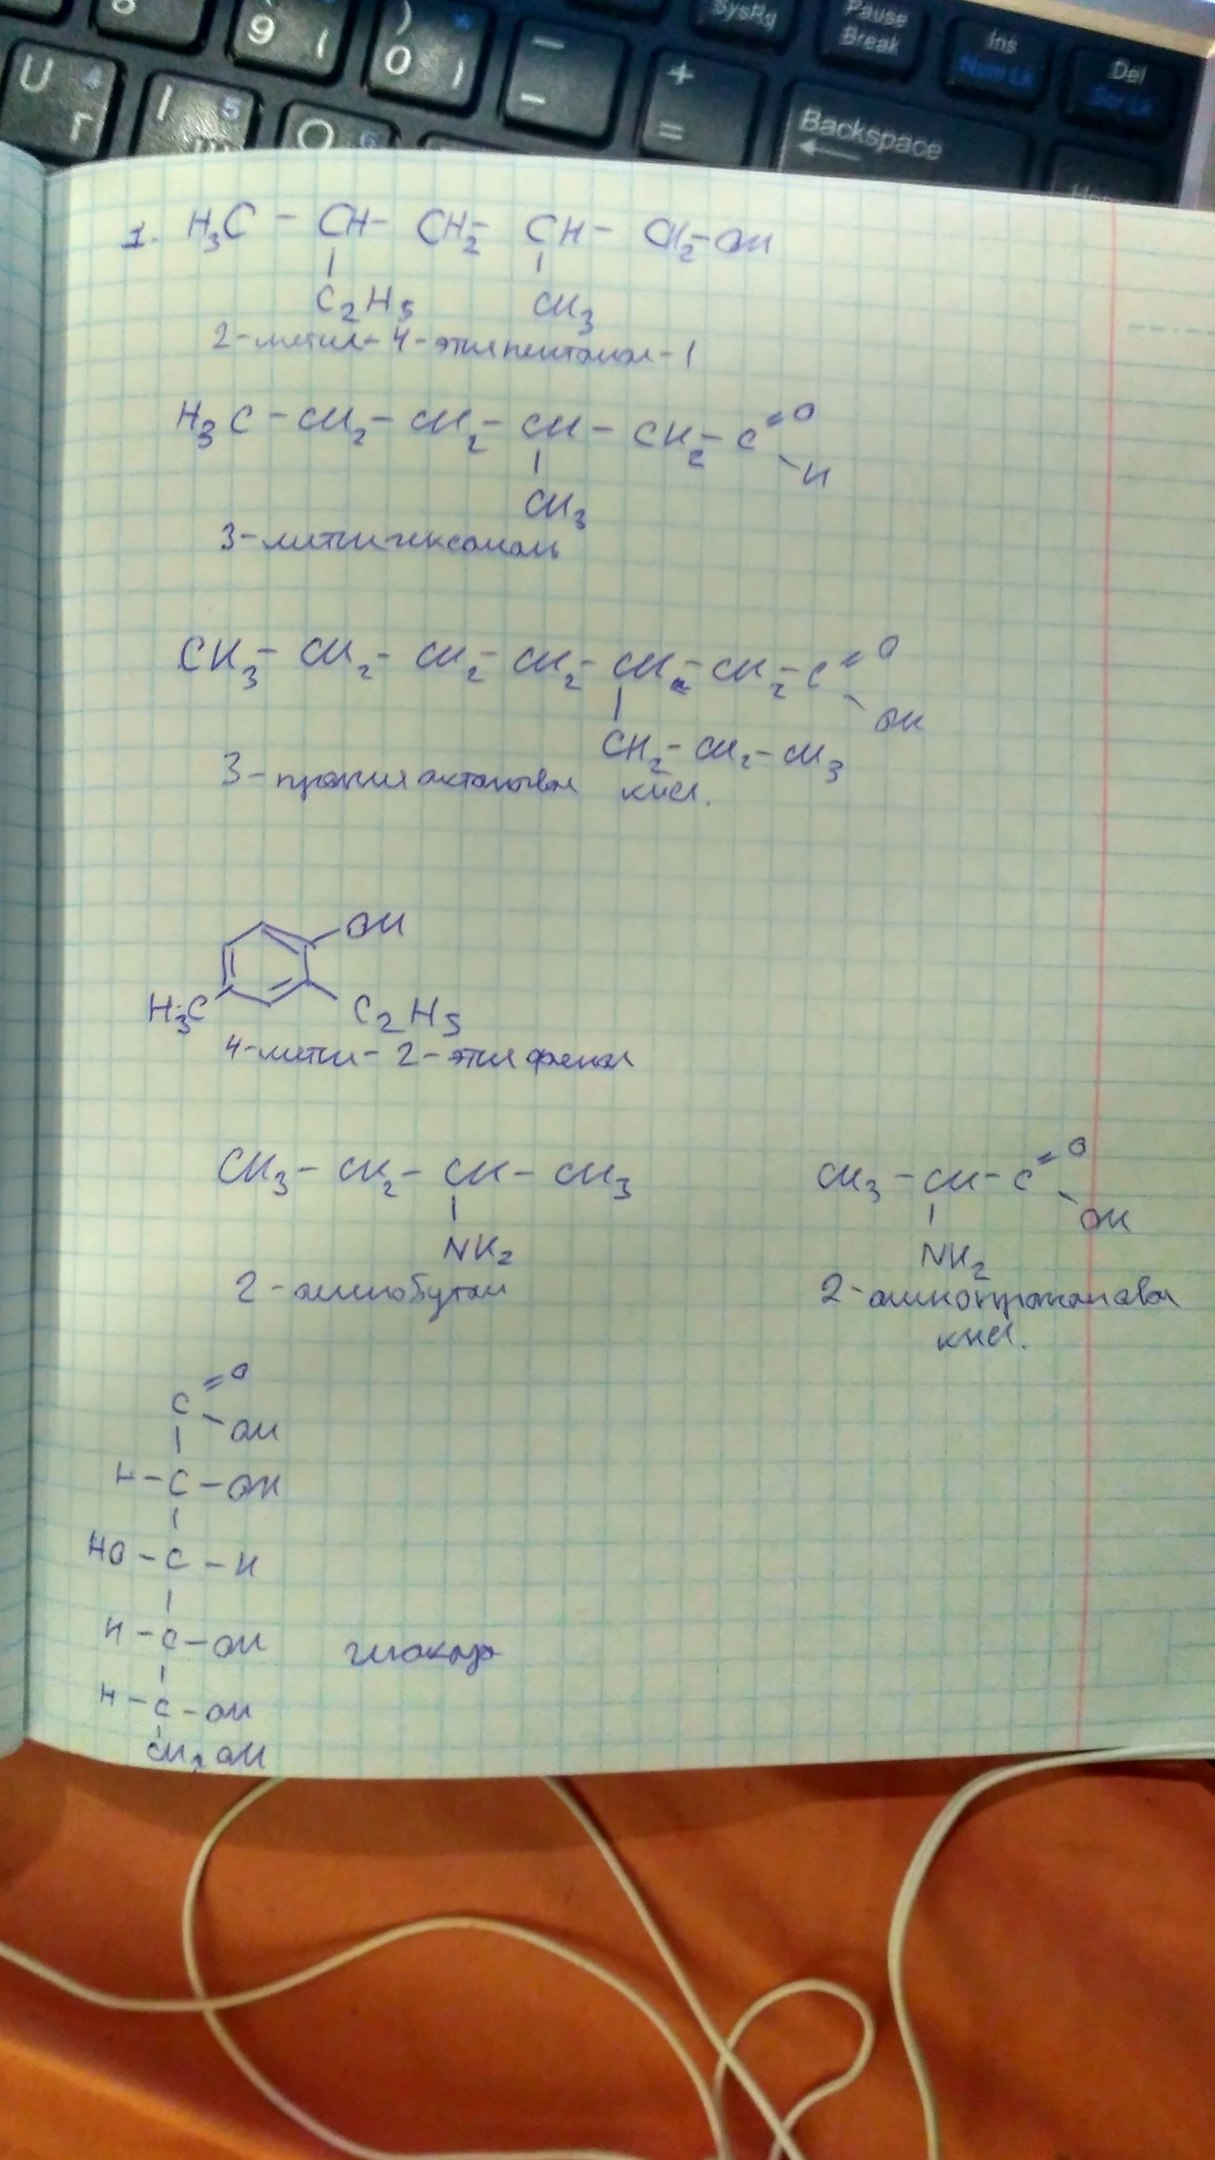 SysRq
Pause
Break
Ins
Num Lk
Del
Scr Lk
9 (
)
0 )
+
=
Backspace
U 4
Г
I 5
Ш
O 6
1. H₃C - CH - CH₂ - CH - CH₂ - OH
C₂H₅ CH₃
2-метил-4-этилпентанол-1
H₃C - CH₂ - CH₂ - CH - CH₂ - C = O
- H
CH₃
3-метилгексаналь
CH₃ - CH₂ - CH₂ - CH₂ - CH - CH₂ - C = O
- OH
CH₂ - CH₂ - CH₃
3-пропил октановая кисл.
OH
H₃C C₂H₅
4-метил-2-этил фенол
CH₃ - CH₂ - CH - CH₃
NH₂
2-аминобутан
CH₃ - CH - C = O
- OH
NH₂
2-аминопропановая
кисл.
C = O
- OH
H - C - OH
HO - C - H
H - C - OH глюкоза
H - C - OH
CH₂OH